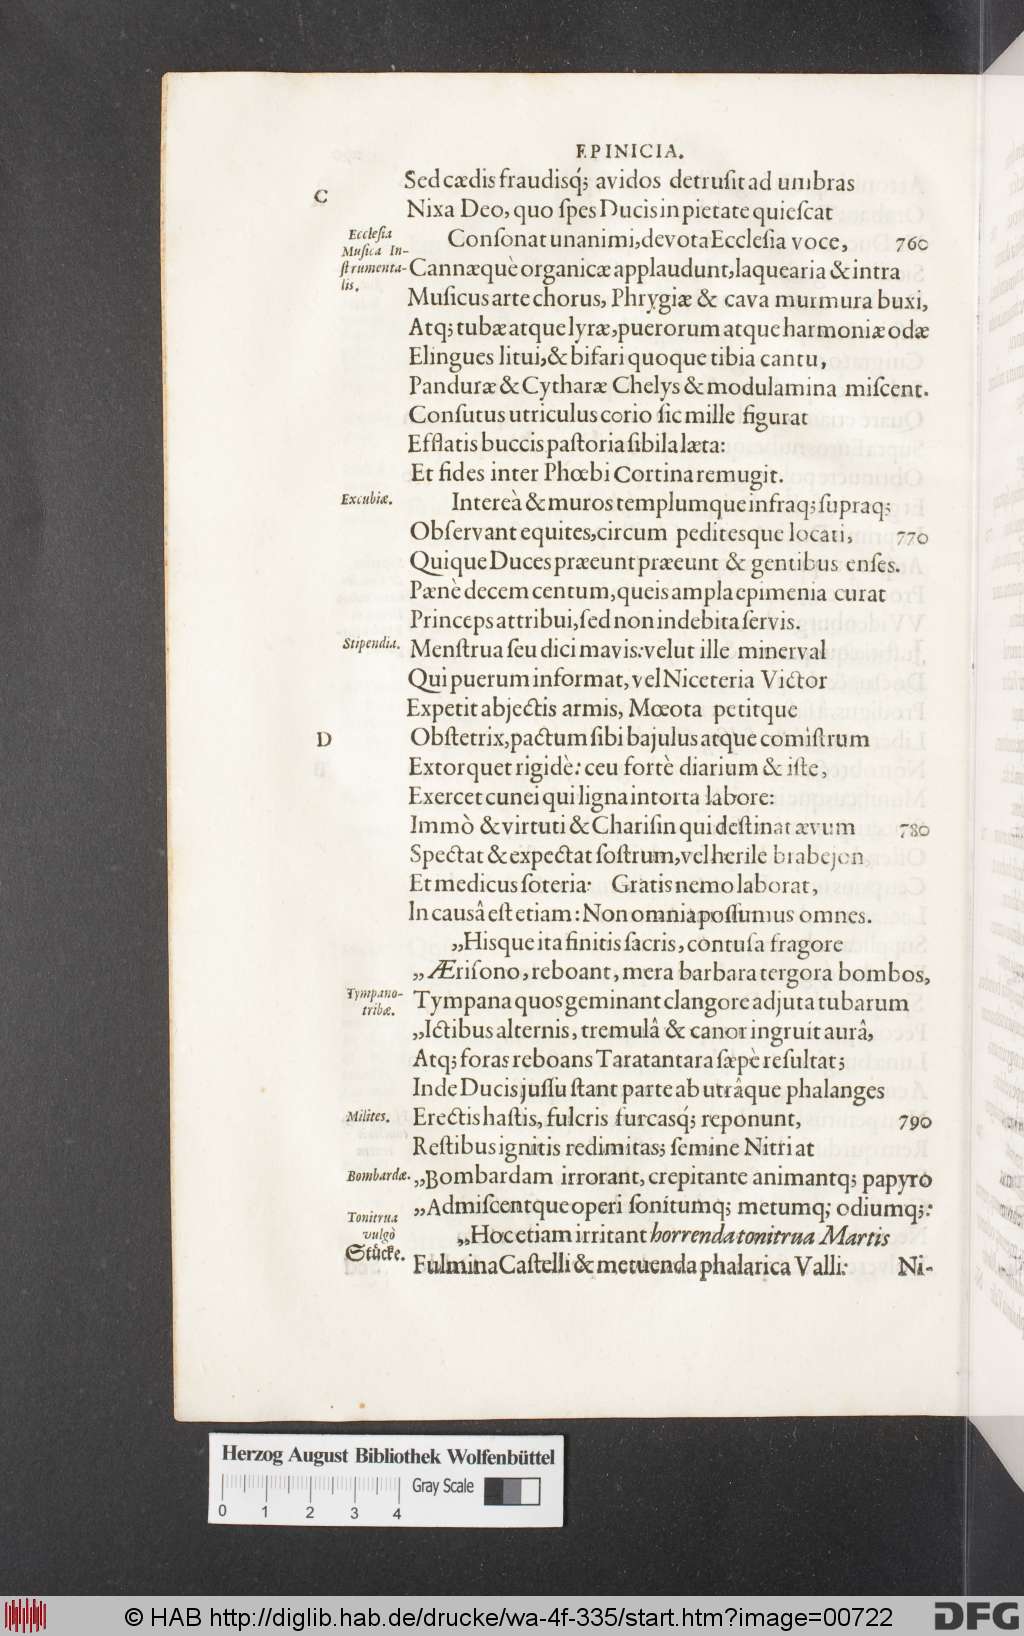 EPINICIA.
C
Sed cædis fraudisq́; avidos detruſit ad umbras
Nixa Deo, quo ſpes Ducis in pietate quieſcat
Eccleſia
Muſica In-
ſtrumenta-
lis.
Conſonat unanimi, devota Eccleſia voce, 760
Cannæquè organicæ applaudunt, laquearia & intra
Muſicus arte chorus, Phrygiæ & cava murmura buxi,
Atq; tubæ atque lyræ, puerorum atque harmoniæ odæ
Elingues litui, & bifari quoque tibia cantu,
Panduræ & Cytharæ Chelys & modulamina miſcent.
Conſutus utriculus corio ſic mille figurat
Efflatis buccis paſtoria ſibila læta:
Et fides inter Phœbi Cortina remugit.
Excubiæ.
Intereà & muros templumque infraq; ſupraq;
Obſervant equites, circum peditesque locati, 770
Quique Duces præeunt præeunt & gentibus enſes.
Pænè decem centum, queis ampla epimenia curat
Princeps attribui, ſed non indebita ſervis.
Stipendia.
Menſtrua ſeu dici mavis: velut ille minerval
Qui puerum informat, vel Niceteria Victor
Expetit abjectis armis, Mœota petitque
D
Obſtetrix, pactum ſibi bajulus atque comiſtrum
Extorquet rigidè: ceu fortè diarium & iſte,
Exercet cunei qui ligna intorta labore:
Immò & virtuti & Chariſin qui deſtinat ævum 780
Spectat & expectat ſoſtrum, vel herile brabejon,
Et medicus ſoteria: Gratis nemo laborat,
In causâ eſt etiam: Non omnia poſſumus omnes.
„Hisque ita finitis ſacris, contuſa fragore
„Æriſono, reboant, mera barbara tergora bombos,
Tympano-
tribæ.
Tympana quos geminant clangore adjuta tubarum
„Ictibus alternis, tremulâ & canor ingruit aurâ,
Atq; foras reboans Taratantara ſæpè reſultat;
Inde Ducis juſſu ſtant parte ab utrâque phalanges
Milites.
Erectis haſtis, fulcris furcasq́; reponunt, 790
Reſtibus ignitis redimitas; ſemine Nitri at
Bombardæ.
„Bombardam irrorant, crepitante animantq; papyro
„Admiſcentque operi ſonitumq; metumq; odiumq;:
Tonitrua
vulgò
Stuͤcke.
„Hoc etiam irritant horrenda tonitrua Martis
Fulmina Caſtelli & metuenda phalarica Valli:
Ni-
Herzog August Bibliothek Wolfenbüttel
Gray Scale
0 1 2 3 4
© HAB http://diglib.hab.de/drucke/wa-4f-335/start.htm?image=00722
DFG